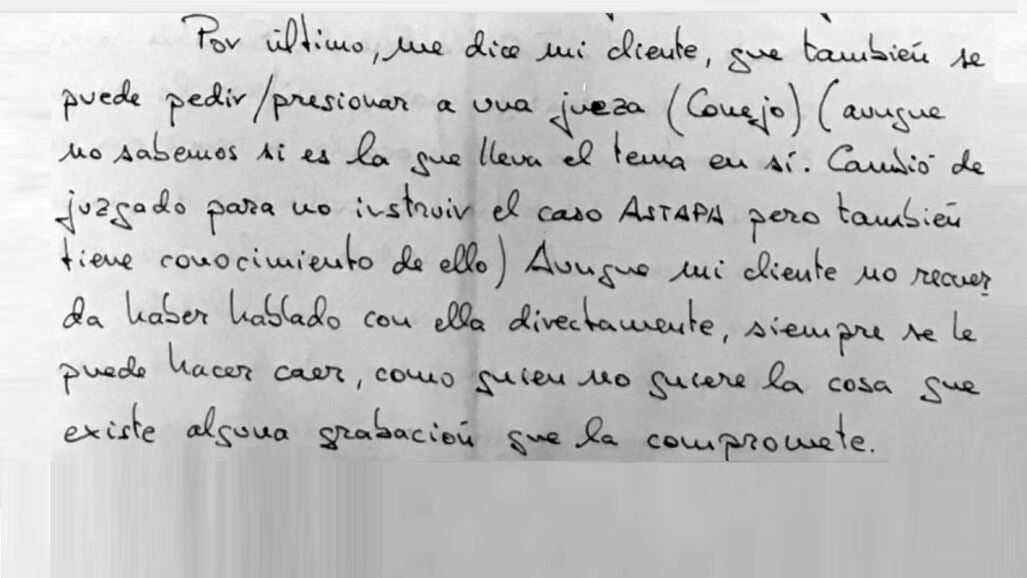 Por último, me dice mi cliente, que también se
puede pedir/presionar a una jueza (Conejo) (aunque
no sabemos si es la que lleva el tema en sí. Cambió de
juzgado para no instruir el caso ASTAPA pero también
tiene conocimiento de ello) Aunque mi cliente no recuer
da haber hablado con ella directamente, siempre se le
puede hacer caer, como quien no quiere la cosa que
existe alguna grabación que la compromete.